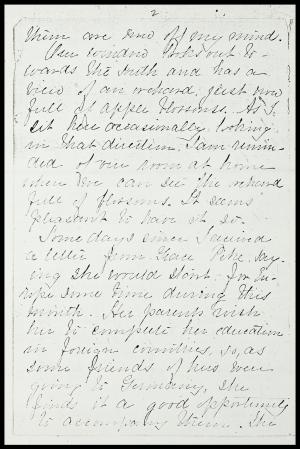 2
them are two off my mind.
Our window looks out to-
wards the south and has a
view of an orchard, just now
full of apple blossoms. As I
sit here occasionally looking
in that direction, I am remin-
ded of our room at home
where we can see the orchard
full of blossoms. It seems
pleasant to have it so.
Some days since I received
a letter from Grace Pike, say-
ing she would start for Eu-
rope some time during this
month. Her parents wish
her to complete her education
in foreign countries, so, as
some friends of hers were
going to Germany, she
finds it a good opportunity
to accompany them. She